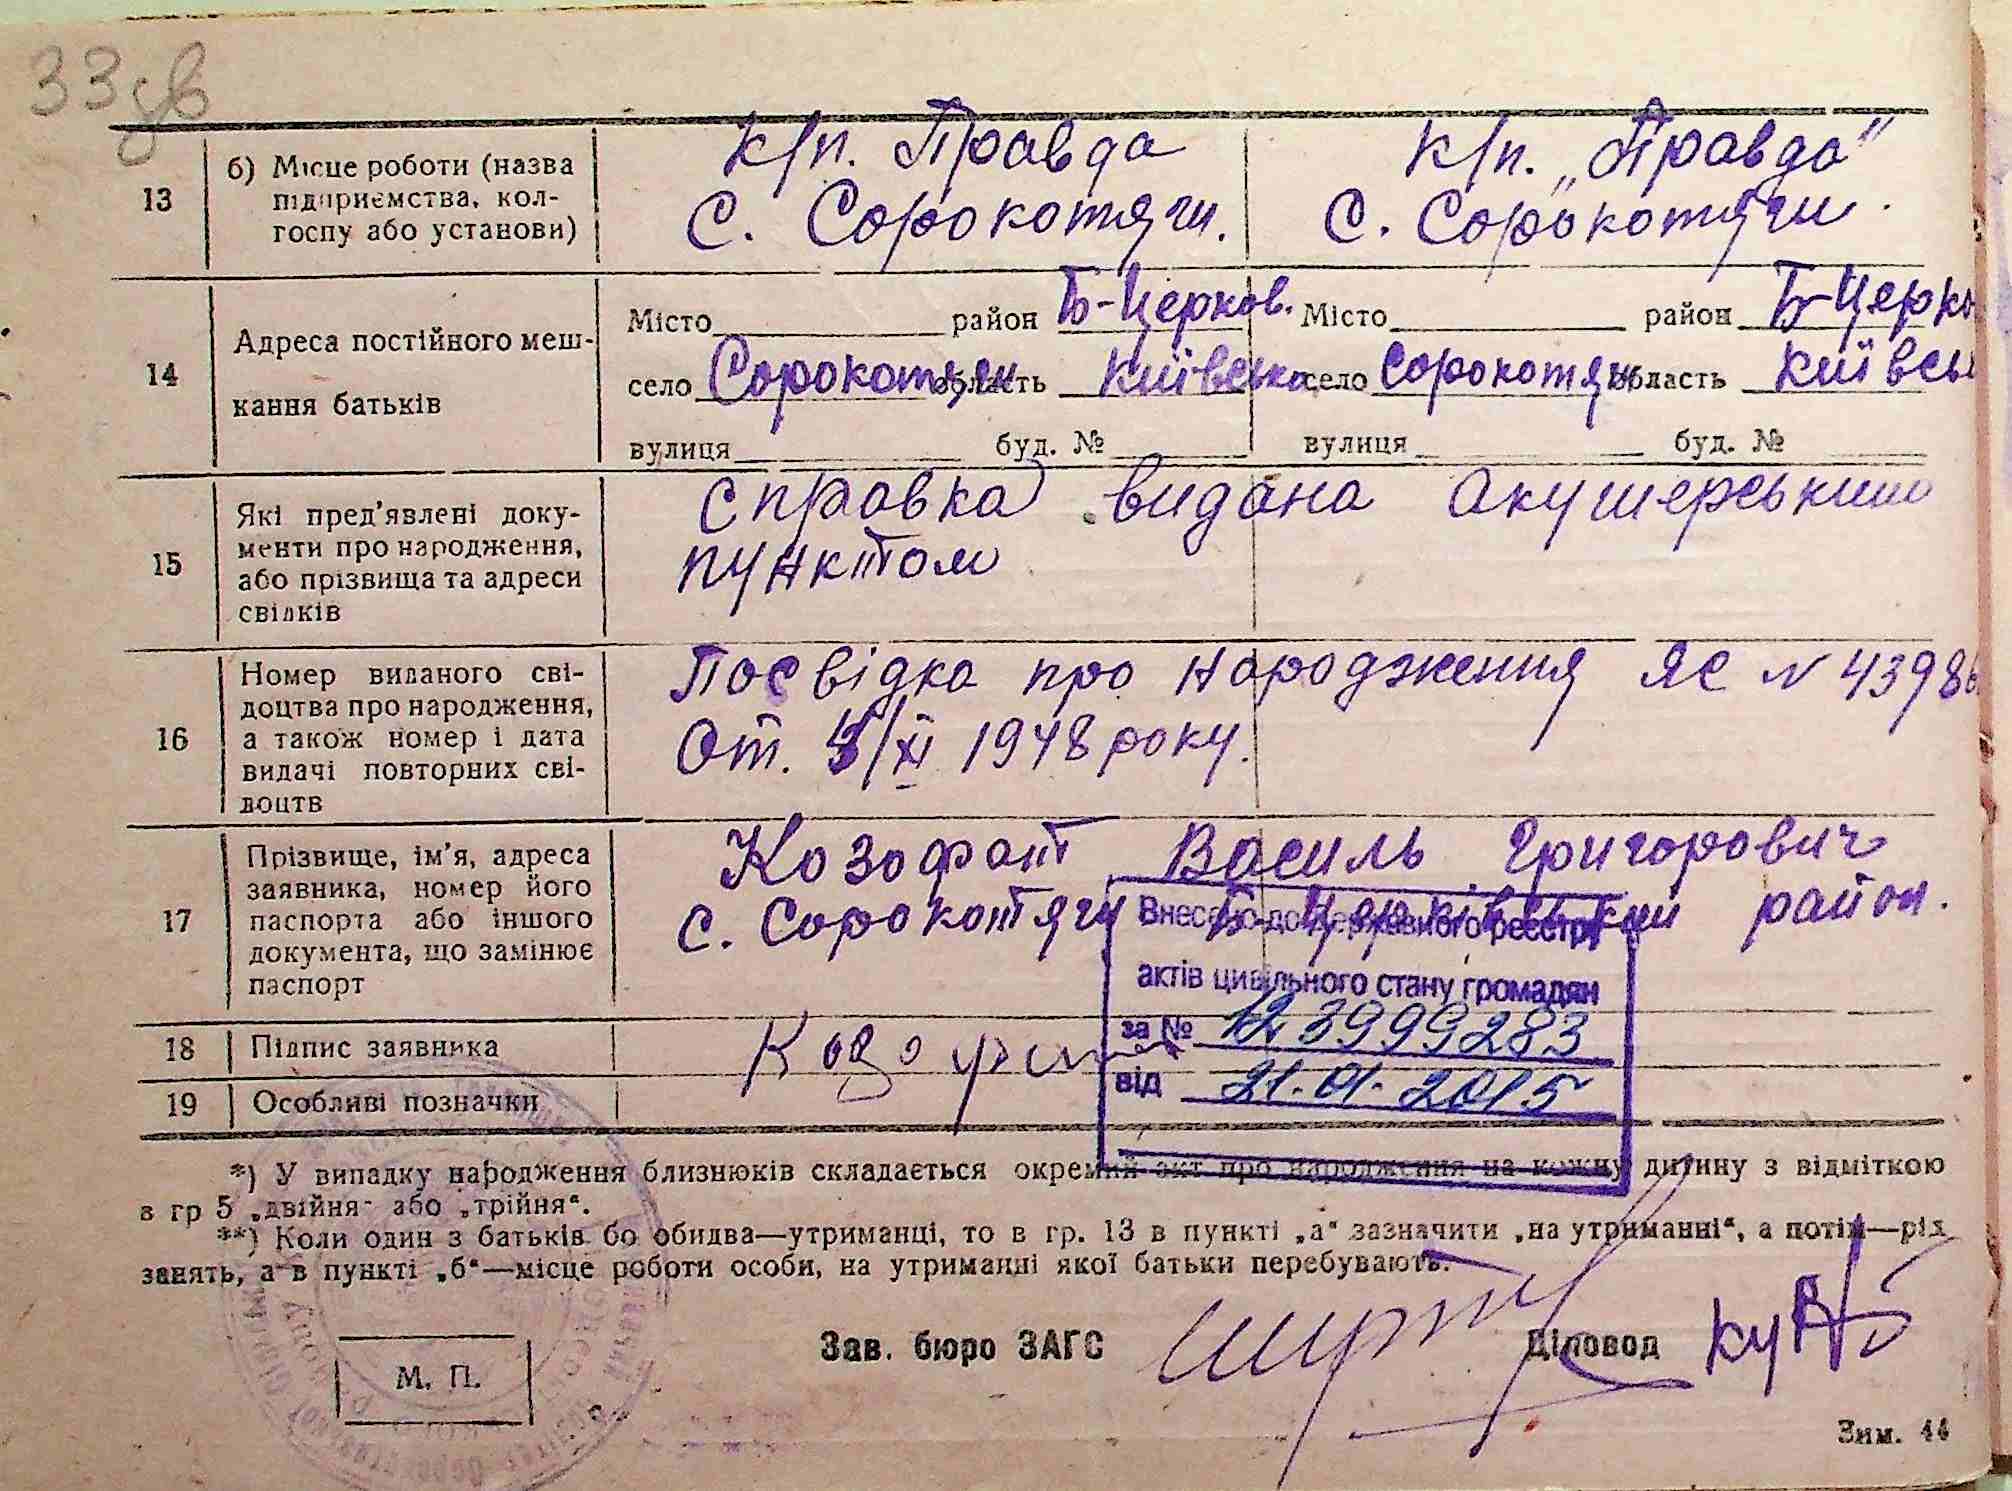 33 зв
13 б) Місце роботи (назва підприємства, колгоспу або установи)
К/п. Правда
с. Сорокотяги.
К/п. „Правда"
с. Сорокотяги.
14 Адреса постійного мешкання батьків
Місто район Б-Церков.
село Сорокотяги область Київська
вулиця буд. №
Місто район Б-Церко
село Сорокотяги область Київсь
вулиця буд. №
15 Які пред'явлені документи про народження, або прізвища та адреси свідків
Справка видана акушерським
пунктом
16 Номер виданого свідоцтва про народження, а також номер і дата видачі повторних свідоцтв
Посвідка про народження ЯЄ № 4398
От. 5/XI 1948 року.
17 Прізвище, ім'я, адреса заявника, номер його паспорта або іншого документа, що замінює паспорт
Козофат Василь Григорович
с. Сорокотяги Б-Церківський район.
Внесено до державного реєстру
актів цивільного стану громадян
за № 123999283
від 21.01.2015
18 Підпис заявника
19 Особливі позначки
*) У випадку народження близнюків складається окремий акт про народження на кожну дитину з відміткою
в гр 5 „двійня" або „трійня".
**) Коли один з батьків бо обидва—утриманці, то в гр. 13 в пункті „а" зазначити „на утриманні", а потім—рід
занять, а в пункті „б"—місце роботи особи, на утриманні якої батьки перебувають.
Зав. бюро ЗАГС
Діловод
М. П.
Зим. 44